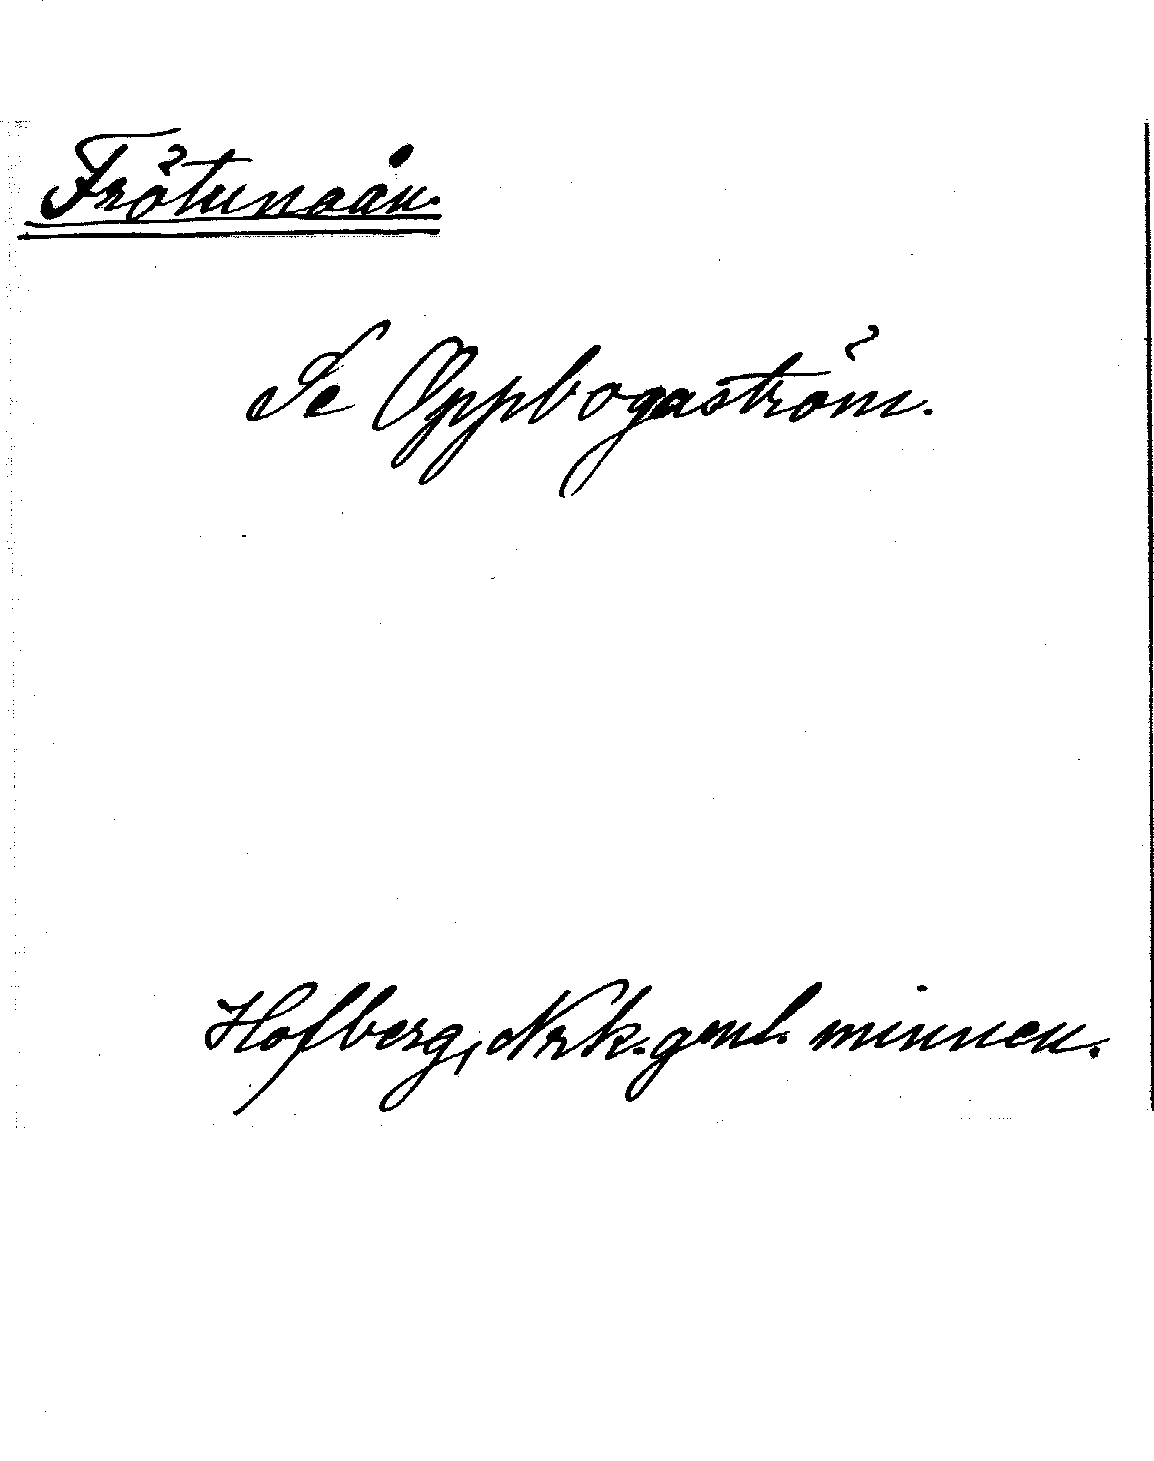 Frötunaån.
Se Oppbogaström.
Hofberg, Nrk. gml. minnen.